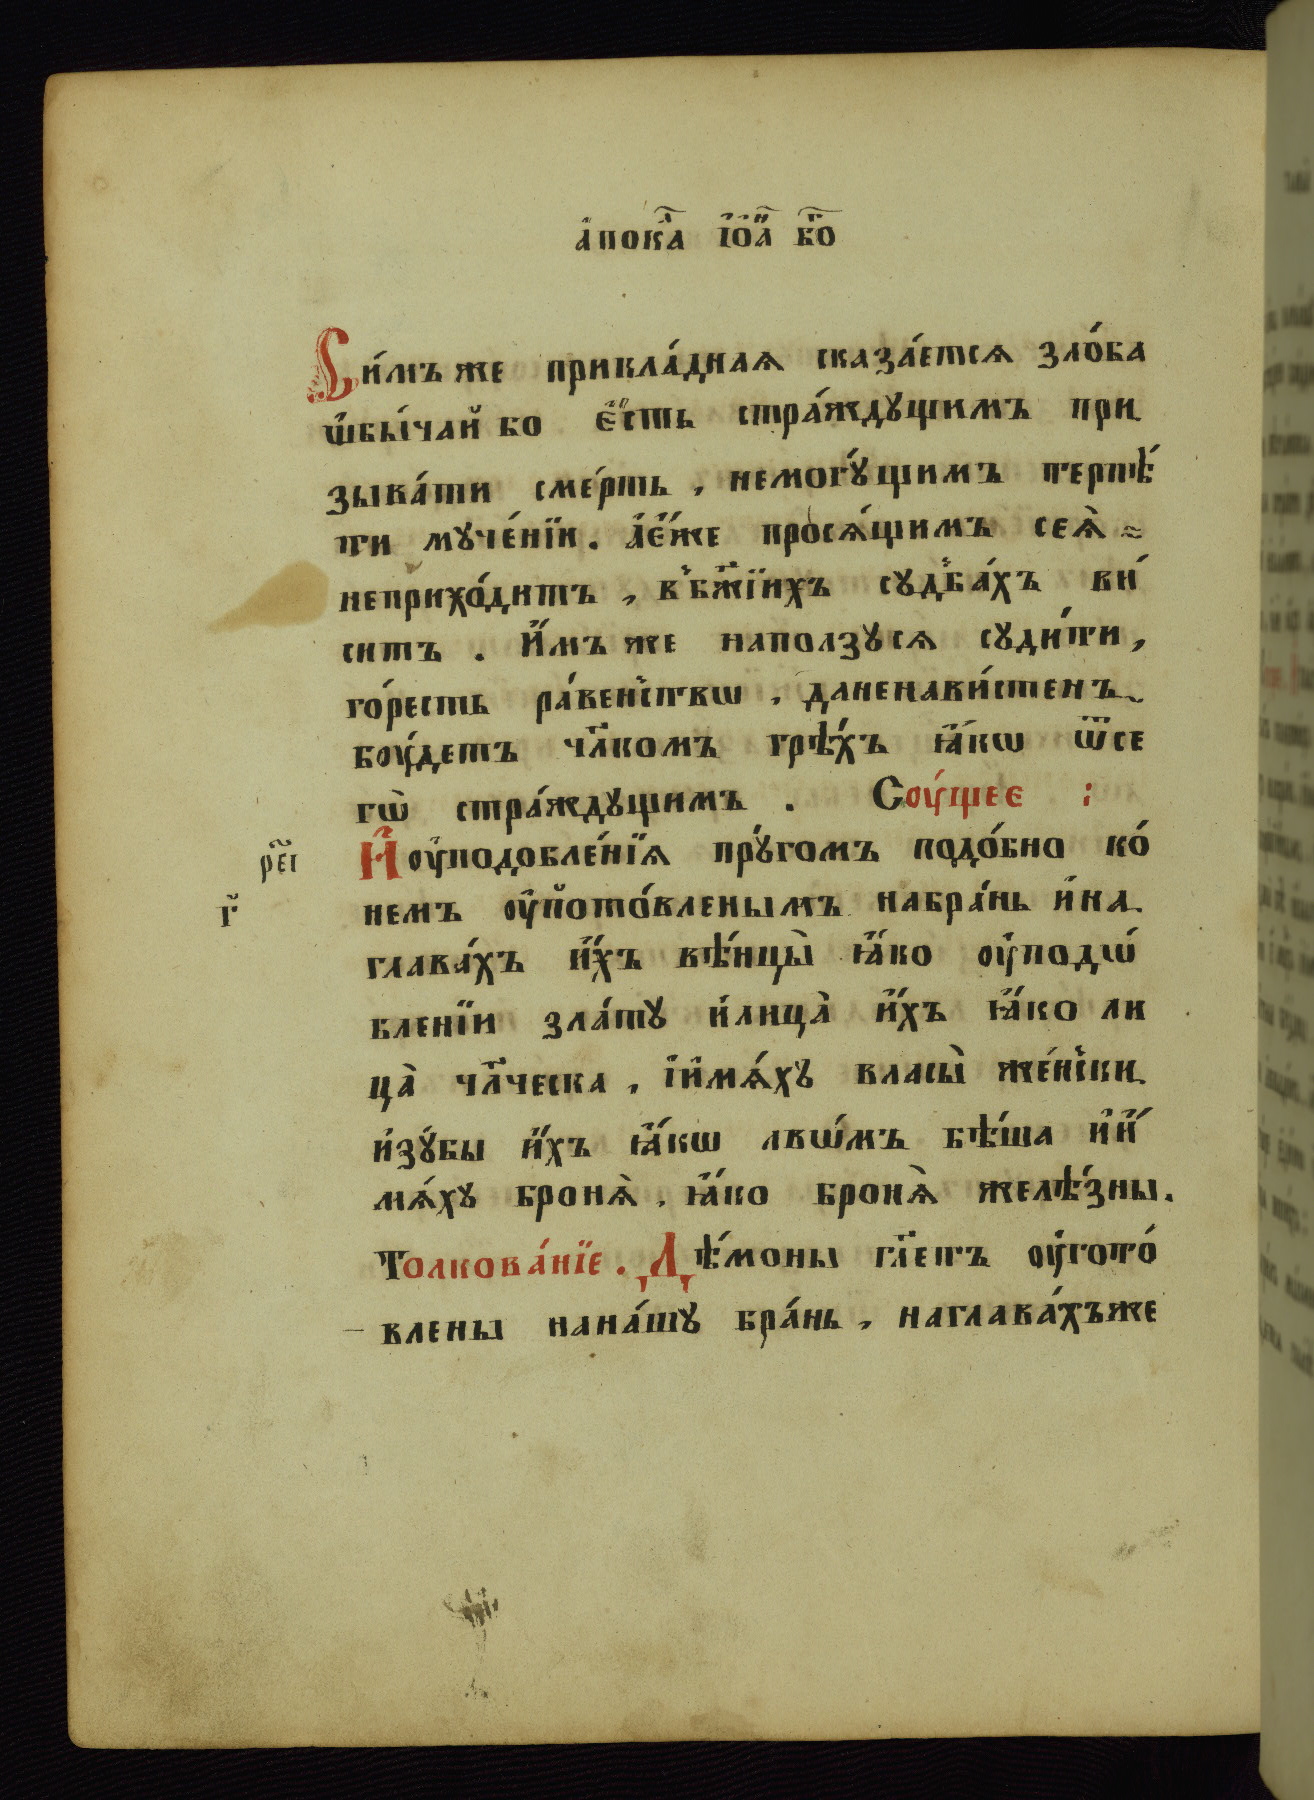 а҆пок҇а і҆ѡ҇а б҇го
Си́мъ же прикла́дная сказа́етсѧ зло́ба
ѡ҆бы́чай бо є҆́сть стра́ждущимъ при
зыва́ти сме́рть , немогу́щимъ терпѣ́
ти муче́нїи . а҆є҆́же просѧ́щимъ сеѧ̀ ~
неприхо́дитъ , в бж҃їихъ суд̾ба́хъ ви́
ситъ . и҆́мъ же наползуся суди́ти ,
го́ресть ра́венствѡ , даненави́стенъ
боу́детъ чл҃комъ грѣ́хъ ꙗ҆́кѡ ѿсе
гѡ̀ стра́ждущимъ . Соу́щее :
рє҃і И҆ оу҆подобле́нїѧ пру́гомъ подо́бно ко́
г҃ немъ оу҆гото́вленымъ набра́нь и҆на
глава́хъ и҆́хъ вѣ́нцы̀ ꙗ҆́ко оу҆подѡ́
бленїи зла́ту и҆лица̀ и҆́хъ ꙗ҆́ко ли
ца̀ чл҃ческа , і҆и҆мѧ́ху власы̀ же́нски
и҆зу́бы и҆́хъ ꙗ҆́кѡ львѡ́мъ бѣ́ша и҆и҆
мѧ́ху бронѧ̀ , ꙗ҆́ко бронѧ̀ желѣ́зны .
Толкова́нїе . Дѣ́моны гл҃етъ оу҆гото́
влены нана́шу бра́нь , наглава́хъже